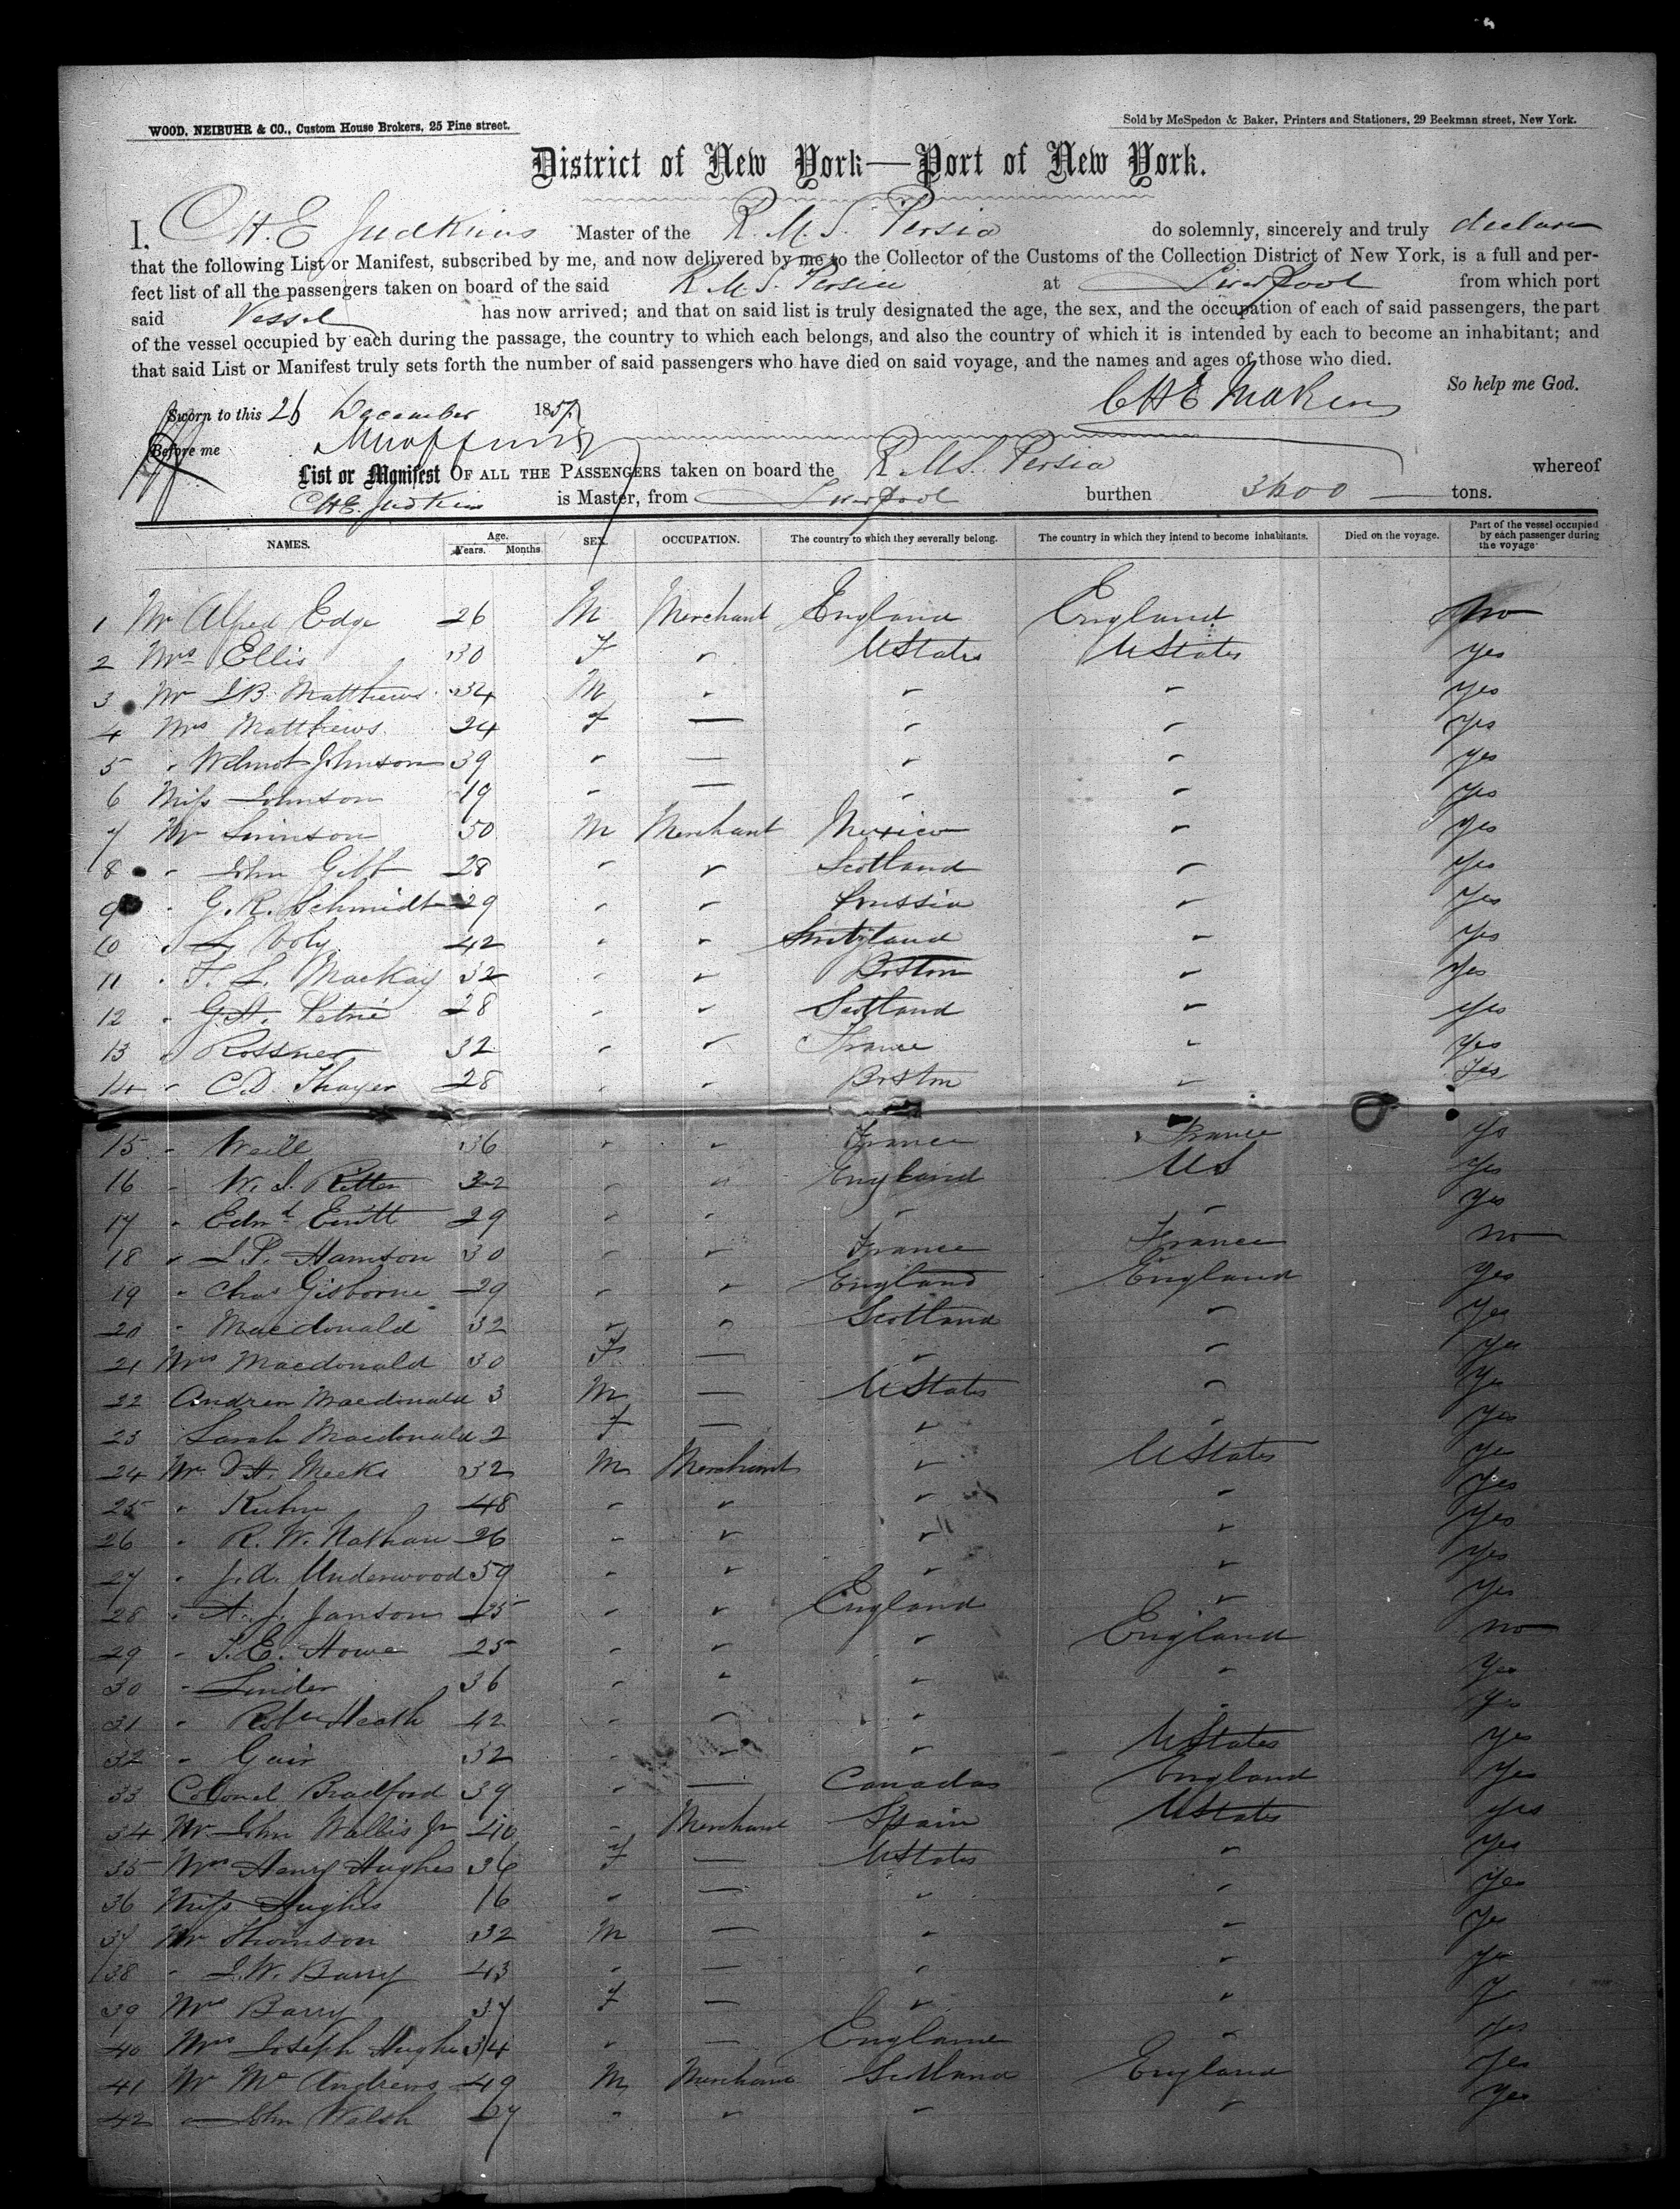 WOOD, NEIBUHR & CO., Custom House Brokers, 25 Pine street.
Sold by McSpedon & Baker, Printers and Stationers, 29 Beekman street, New York.
District of New York—Port of New York.
I, CH.E Judkins Master of the R.M.S. Persia do solemnly, sincerely and truly declare
that the following List or Manifest, subscribed by me, and now delivered by me to the Collector of the Customs of the Collection District of New York, is a full and per-
fect list of all the passengers taken on board of the said R.M.S. Persia at Liverpool from which port
said Vessel has now arrived; and that on said list is truly designated the age, the sex, and the occupation of each of said passengers, the part
of the vessel occupied by each during the passage, the country to which each belongs, and also the country of which it is intended by each to become an inhabitant; and
that said List or Manifest truly sets forth the number of said passengers who have died on said voyage, and the names and ages of those who died.
So help me God.
Sworn to this 26 December 1857
Before me
List or Manifest OF ALL THE PASSENGERS taken on board the R.M.S. Persia whereof
CHE. Judkins is Master, from Liverpool burthen 3600 tons.
NAMES. Age. Years. Months. SEX. OCCUPATION. The country to which they severally belong. The country in which they intend to become inhabitants. Died on the voyage. Part of the vessel occupied by each passenger during the voyage
1 Mr Alfred Edge 26 M Merchant England England No
2 Mrs Ellis 30 F " UStates UStates yes
3 Mr I.B. Matthews 34 M " " " yes
4 Mrs Matthews 24 F — " " yes
5 " Wilmot Johnson 39 " — " " yes
6 Miss Johnson 19 " — " " yes
7 Mr 50 M Merchant Mexico " yes
8 " John Gibb 28 " " Scotland " yes
9 " G.R. Schmidt 29 " " Prussia " yes
10 " 42 " " " yes
11 " F. L. Mackay 32 " " Boston " yes
12 " G.H. Petrie 28 " " Scotland " yes
13 " Rossner 32 " " France " yes
14 " C.D. Thayer 28 " " Boston " yes
15 " Weill 36 " " France France yes
16 " W. I. Ritter 32 " " England US yes
17 " Edmd 29 " " " " yes
18 " 30 " " France France no
19 " Chas Gisborne 29 " " England England yes
20 " Macdonald 32 " " Scotland " yes
21 Mrs Macdonald 30 F — " " yes
22 Andrew Macdonald 3 M — UStates " yes
23 Sarah Macdonald 2 F — " " yes
24 Mr Meeks 32 M Merchant " UStates yes
25 " Kuhn 48 " " " " yes
26 " R. W. Nathan 26 " " " " yes
27 " J.A. Underwood 59 " " " " yes
28 " Janson 25 " " England " yes
29 " Howe 25 " " " England no
30 " Linder 36 " " " " yes
31 " Heath 42 " " " " yes
32 " Gair 32 " " " UStates yes
33 Colonel Bradford 39 " — Canada England yes
34 Mr John Wallis Jr 40 " Merchant Spain UStates yes
35 Mrs Henry Hughes 36 F — UStates " yes
36 Miss Hughes 16 " — " " yes
37 Mr Thomson 32 M — " " yes
38 " I.W. Barry 43 " — " " yes
39 Mrs Barry 37 F — " " y
40 Mrs Joseph Hughes 34 " — England " yes
41 Mr Mc Andrews 49 M Merchant Scotland England yes
42 " John Walsh 27 " " " " yes